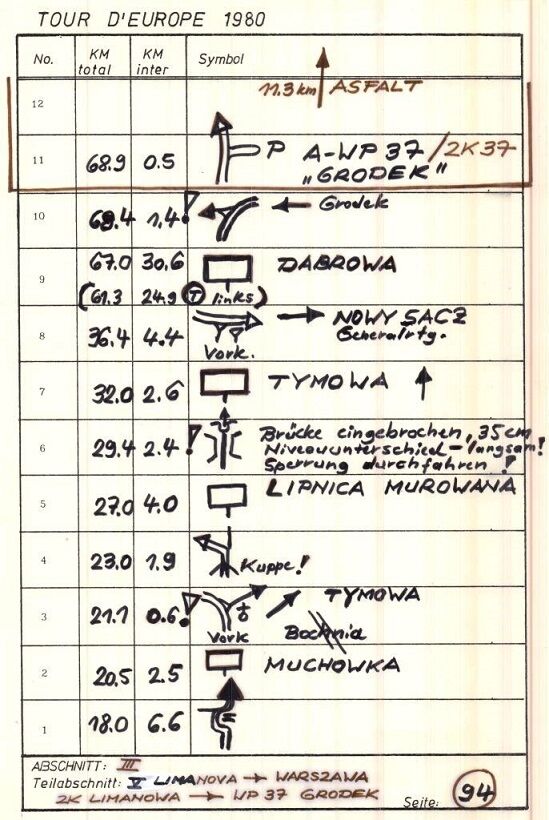 TOUR D'EUROPE 1980
No. KM total KM inter Symbol
12 11.3 km ASFALT
11 68.9 0.5 P A-WP 37 / 2K 37
„GRODEK"
10 68.4 1.4 ! Grodek
9 67.0 30.6 DABROWA
(61.3 24.9 T links)
8 36.4 4.4 NOWY SACZ
Generalrtg.
Vork.
7 32.0 2.6 TYMOWA
6 29.4 2.4 ! Brücke eingebrochen, 35 cm
Niveauunterschied - langsam!
Sperrung durchfahren!
5 27.0 4.0 LIPNICA MUROWANA
4 23.0 1.9 Kuppe!
3 21.1 0.6 ! TYMOWA
Vork Bochnia
2 20.5 2.5 MUCHOWKA
1 18.0 6.6
ABSCHNITT: III
Teilabschnitt: V LIMANOVA → WARSZAWA
2K LIMANOWA → WP 37 GRODEK
Seite: 94